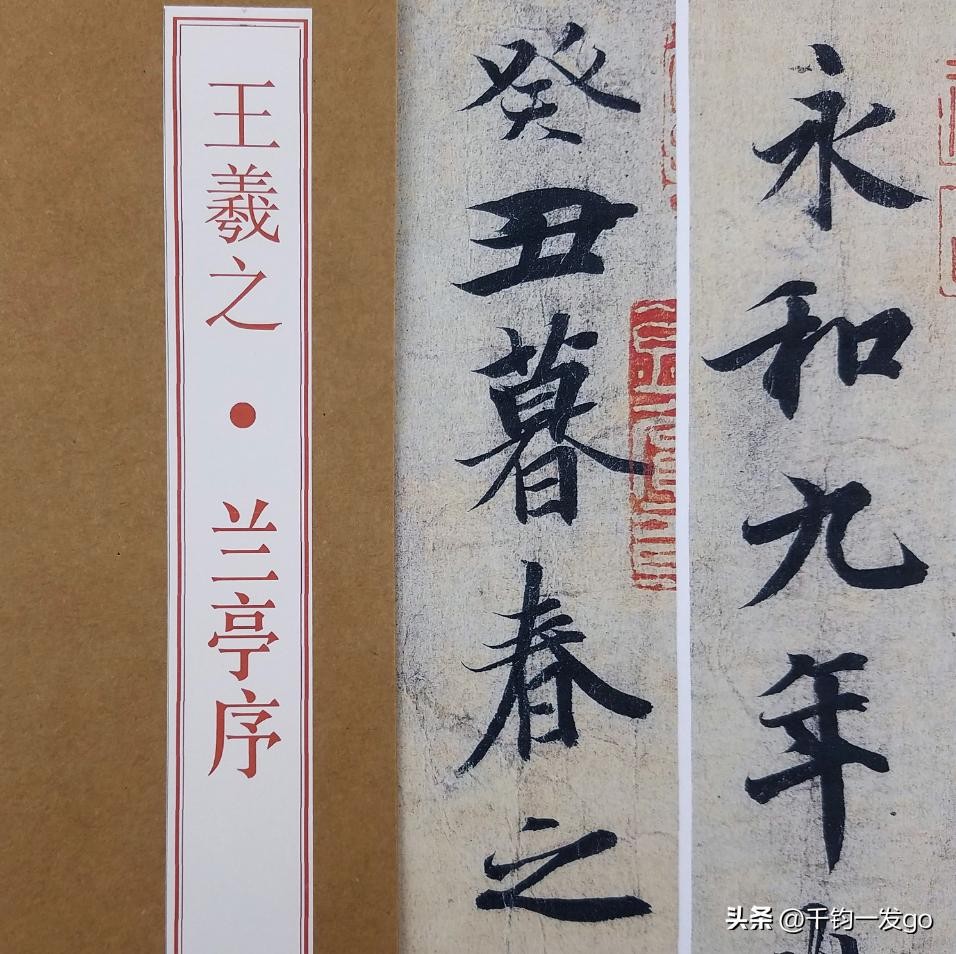 永和九年
癸丑暮春之
王羲之·兰亭序
头条 @千钧一发go